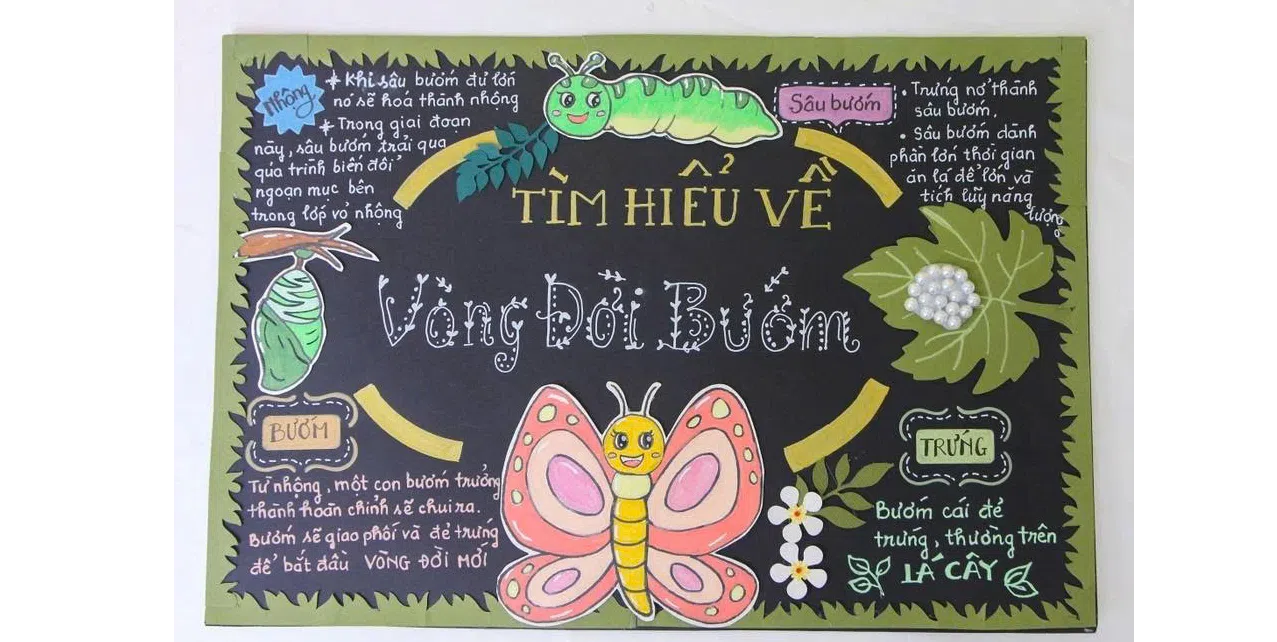 TÌM HIỂU VỀ
Vòng Đời Bướm
Nhộng
+ Khi sâu bướm đủ lớn
nó sẽ hoá thành nhộng
+ Trong giai đoạn
này, sâu bướm trải qua
quá trình biến đổi
ngoạn mục bên
trong lớp vỏ nhộng
Sâu bướm
• Trứng nở thành
sâu bướm.
• Sâu bướm dành
phần lớn thời gian
ăn lá để lớn và
tích lũy năng
lượng
BƯỚM
Từ nhộng, một con bướm trưởng
thành hoàn chỉnh sẽ chui ra.
Bướm sẽ giao phối và đẻ trứng
để bắt đầu VÒNG ĐỜI MỚI
TRỨNG
Bướm cái đẻ
trứng, thường trên
LÁ CÂY